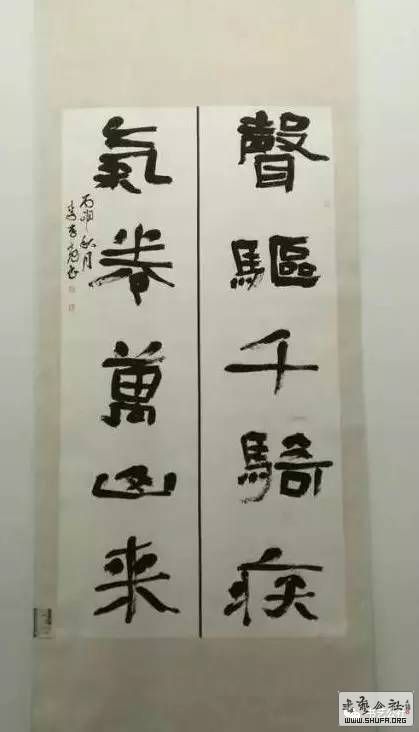 聲驅千騎疾
氣卷萬山来
丙申秋月
書藝公社
WWW.SHUFA.ORG